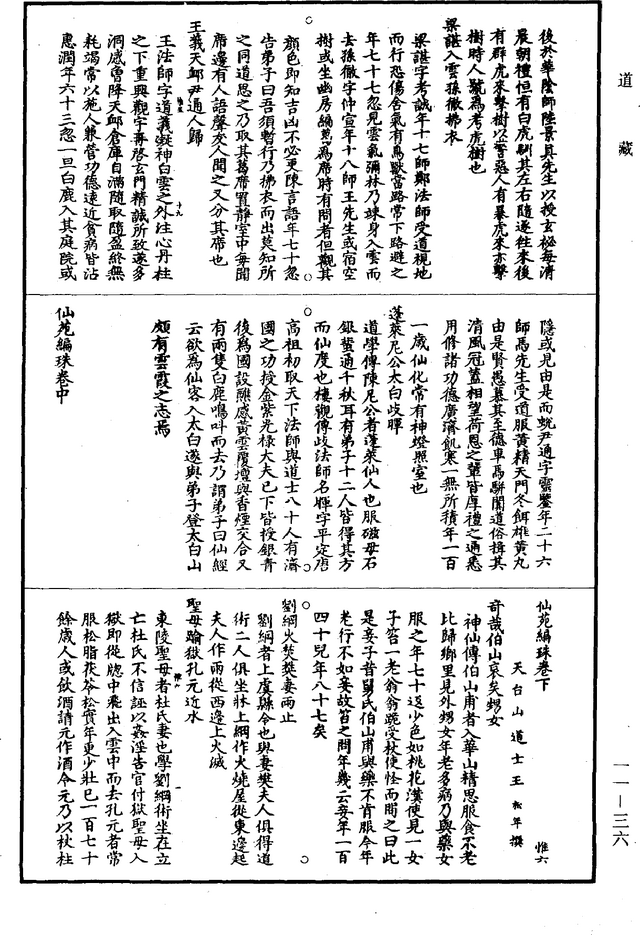 道藏
後於華陰師陸景真先生以授玄祕每清
晨朝禮恒有白虎馴其左右隨逐往來後
有群虎來擊樹以警惡人有暴虎來亦擊
樹時人號為考虎樹也
梁諶入雲孫徹拂衣
梁諶字考誠年十七師鄭法師受道視地
而行恐傷含氣有鳥獸當路常下路避之
年七十七忽見雲氣彌林乃竦身入雲而
去孫徹字仲宣年十八師王先生或宿空
樹或坐幽房編蒭為席時有問者但觀其
顏色即知吉凶不必更陳言語年七十忽
告弟子曰吾須暫行乃拂衣而出莫知所
之同道思之乃取其舊席置靜室中每聞
席邊有人語聲友人聞之又分其席也
王義天邱尹通人歸
王法師字道義凝神白雲之外注心丹柱
之下重興觀宇再啓玄門精誠所致遂多
洞感嘗降天邱倉庫自滿隨取隨盈終無
耗竭常以施人兼營功德遠近貧病皆沾
惠潤年六十三忽一旦白鹿入其庭院或
隱或見由是而蛻尹通字靈鑒年二十六
師馬先生受道服黃精天門冬餌雄黃丸
由是賢愚慕其至德車馬駢闐道俗揖其
清風冠蓋相望荷恩之輩皆厚禮之通悉
用修諸功德廣濟飢寒一無所積年一百
一歲仙化常有神燈照室也
蓬萊尼公太白歧暉
道學傳陳尼公者蓬萊仙人也服磁母石
銀蜚通千秋耳有弟子十二人皆得其方
而仙度也樓觀傳歧法師名暉字平定唐
高祖初取天下法師與道士八十人有濟
國之功授金紫光祿大夫已下皆授銀青
後為國設醮感黃雲覆壇與香煙交合又
有兩隻白鹿鳴叫而去乃謂弟子曰仙經
云欲為仙客入太白遂與弟子登太白山
頗有雲霞之志焉
仙苑編珠卷中
仙苑編珠卷下 惟六
天台山道士王松年撰
奇哉伯山哀矣甥女
神仙傳伯山甫者入華山精思服食不老
比歸鄉里見外甥女年老多病乃與藥女
服之年七十返少色如桃花漢使見一女
子笞一老翁翁跪受杖使怪而問之曰此
是妾子昔舅氏伯山甫與藥不肯服今年
老行不如妾故笞之問年幾云妾年一百
四十兒年八十七矣
劉綱火焚樊妻雨止
劉綱者上虞縣令也與妻樊夫人俱得道
術二人俱坐牀上綱作火燒屋從東邊起
夫人作雨從西邊上火滅
聖母踰獄孔元近水
東陵聖母者杜氏妻也學劉綱術坐在立
亡杜氏不信誣以姦淫告官付獄聖母入
獄即從牕中飛出入雲中而去孔元者常
服松脂茯苓松實年更少壯已一百七十
餘歲人或飲酒請元作酒令元乃以杖柱
一一—三六